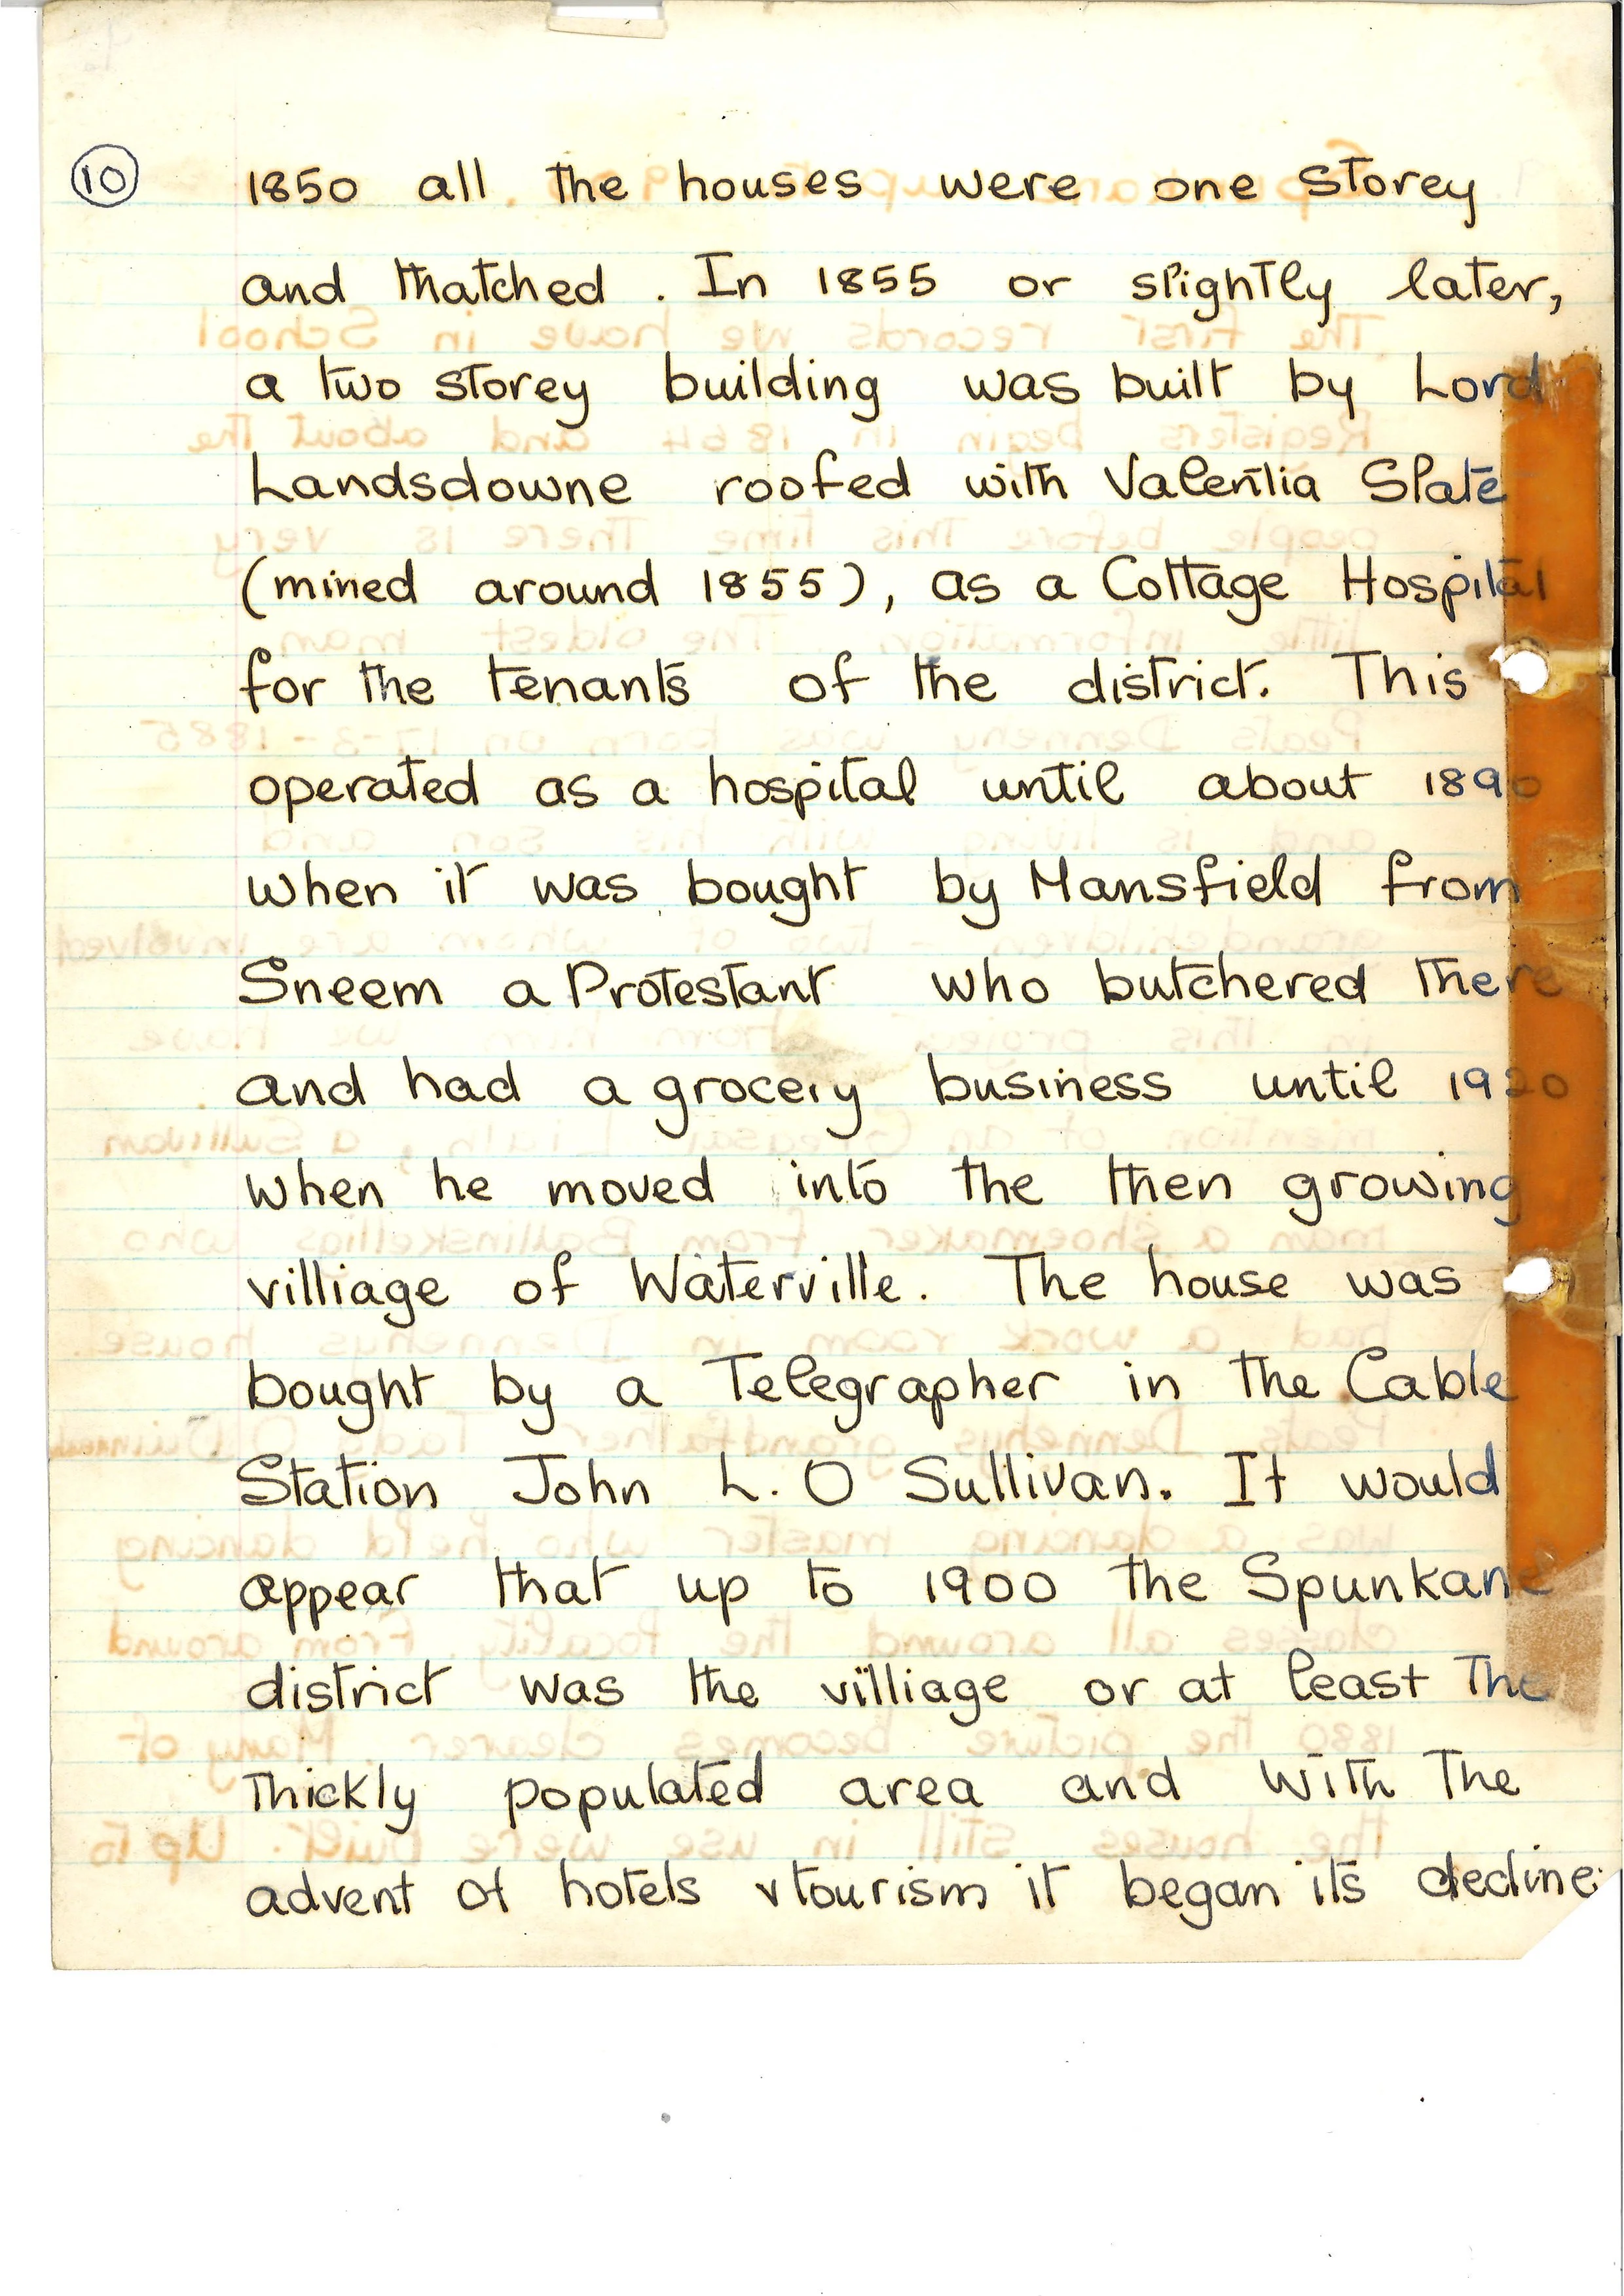 10
1850 all the houses were one storey
and thatched. In 1855 or slightly later,
a two storey building was built by Lord
Landsdowne roofed with Valentia Slate
(mined around 1855), as a Cottage Hospital
for the tenants of the district. This
operated as a hospital until about 1890
when it was bought by Mansfield from
Sneem a Protestant who butchered there
and had a grocery business until 1920
when he moved into the then growing
villiage of Waterville. The house was
bought by a Telegrapher in the Cable
Station John L. O Sullivan. It would
appear that up to 1900 the Spunkane
district was the villiage or at least the
thickly populated area and with the
advent of hotels & tourism it began its decline.